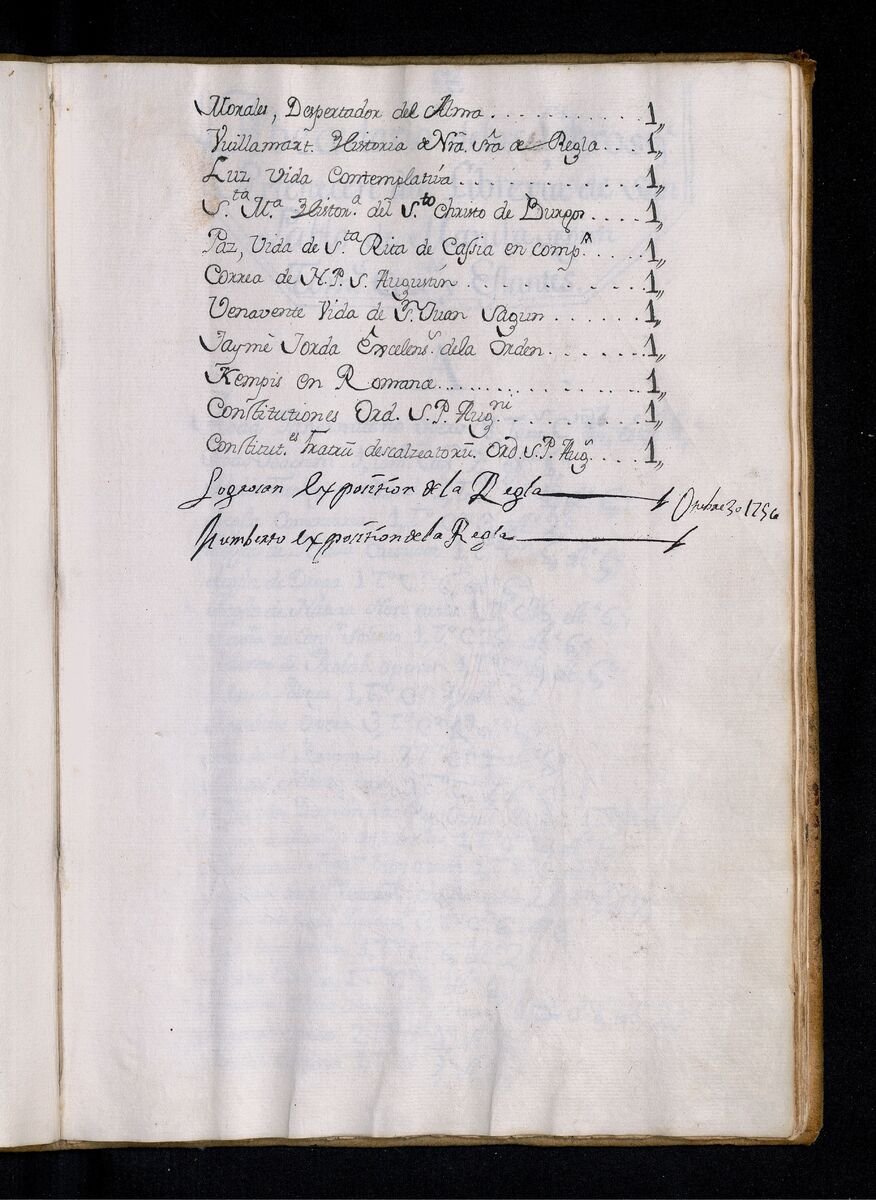 Morales, Despertador del Alma . . . . . . . . . . . 1,,
Vuillamart. Historia de Nrã. Srã de Regla . . . 1,,
Luz Vida Contemplativa . . . . . . . . . . . . . 1,,
S.ta M.a Histor.a del S.to Christo de Burgos . . . . 1,,
Paz, Vida de S.ta Rita de Cassia en comp.a . . . . 1,,
Correa de N. P. S. Augustin . . . . . . . . . . . 1,,
Venavente Vida de S.n Juan Sagun . . . . . . 1,,
Jayme Jorda Excelens.s dela Orden . . . . . . 1,,
Kempis en Romance . . . . . . . . . . . . . 1,,
Constitutiones Ord. S. P. Aug.ni . . . . . . . . . 1,,
Constitut.es Fratrũ descalzeatorũ. Ord. S. P. Aug.n . . . . 1,,
Logrosan Exposision de la Regla 1 Otubre 30 1756
Humberto exposision de la Regla 1